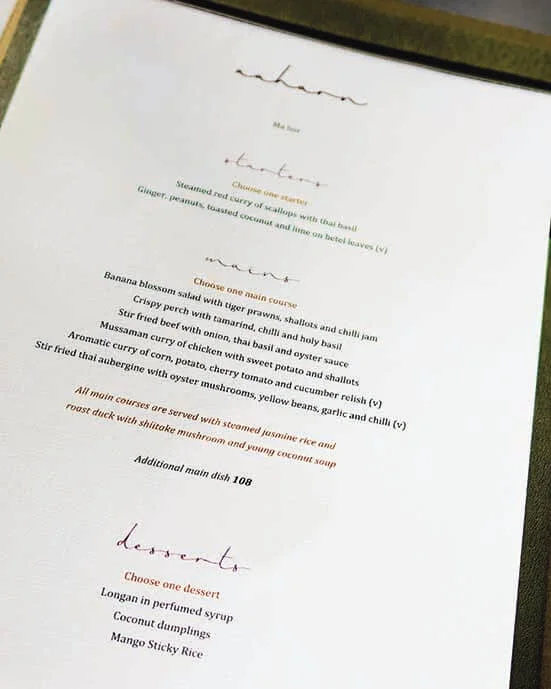 aaharn
Ma hor
starters
Choose one starter
Steamed red curry of scallops with thai basil
Ginger, peanuts, toasted coconut and lime on betel leaves (v)
mains
Choose one main course
Banana blossom salad with tiger prawns, shallots and chilli jam
Crispy perch with tamarind, chilli and holy basil
Stir fried beef with onion, thai basil and oyster sauce
Mussaman curry of chicken with sweet potato and shallots
Aromatic curry of corn, potato, cherry tomato and cucumber relish (v)
Stir fried thai aubergine with oyster mushrooms, yellow beans, garlic and chilli (v)
All main courses are served with steamed jasmine rice and
roast duck with shiitake mushroom and young coconut soup
Additional main dish 108
desserts
Choose one dessert
Longan in perfumed syrup
Coconut dumplings
Mango Sticky Rice